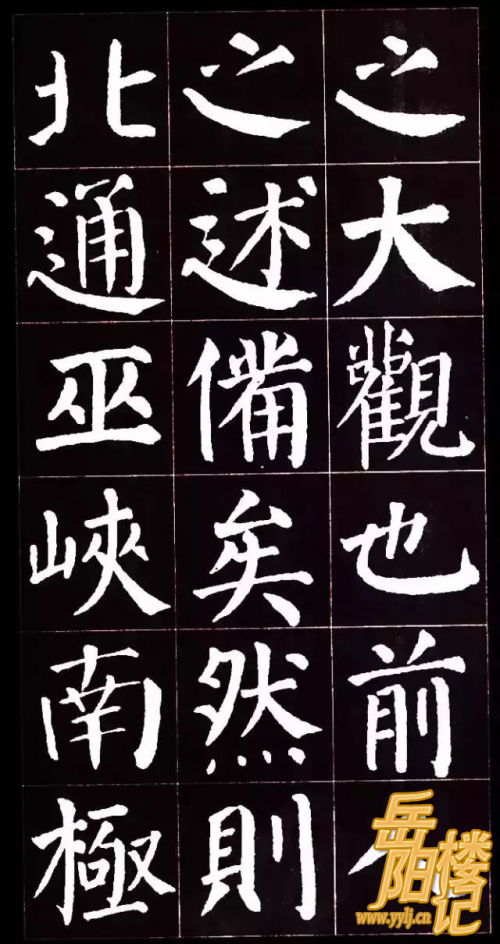 之大觀也前
之述備矣然則
北通巫峽南極
岳阳楼记
www.yylj.cn